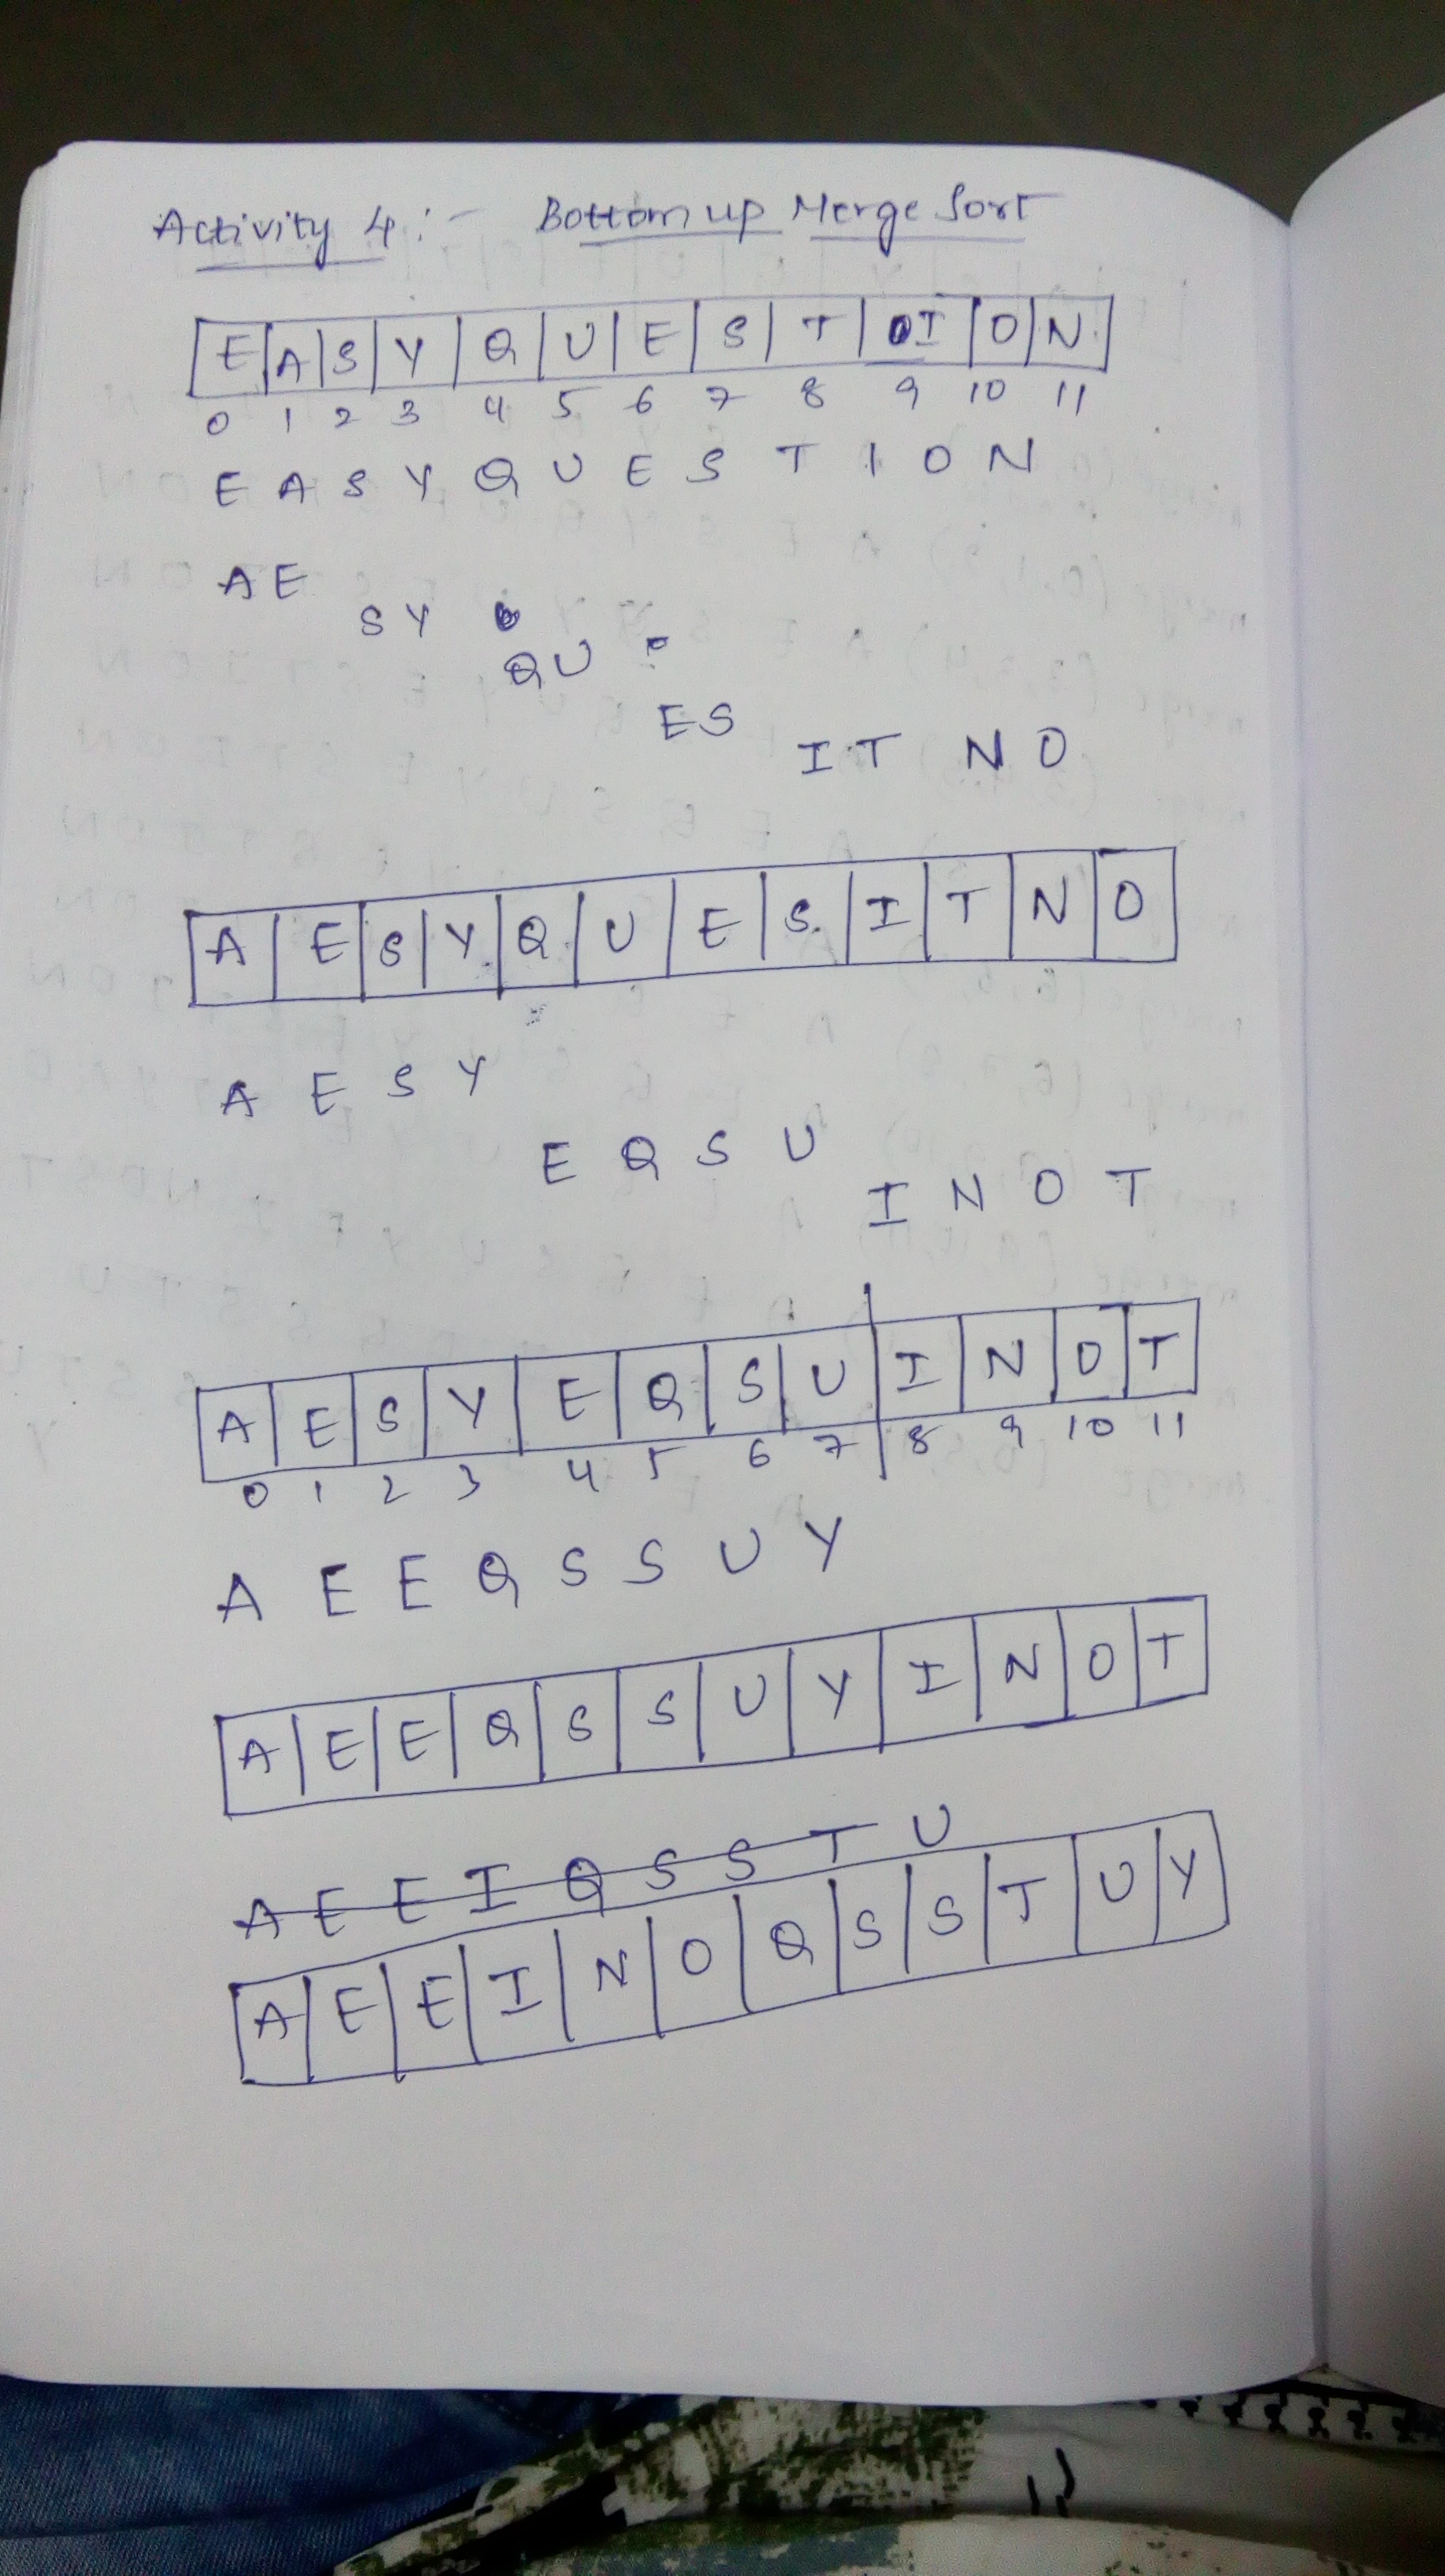 Activity 4:- Bottom up Merge Sort
E A S Y Q U E S T I O N
0 1 2 3 4 5 6 7 8 9 10 11
E A S Y Q U E S T I O N
A E
S Y
Q U
E S
I T N O
A E S Y Q U E S I T N O
A E S Y
E Q S U
I N O T
A E S Y E Q S U I N O T
0 1 2 3 4 5 6 7 8 9 10 11
A E E Q S S U Y
A E E Q S S U Y I N O T
A E E I Q S S T U
A E E I N O Q S S T U Y